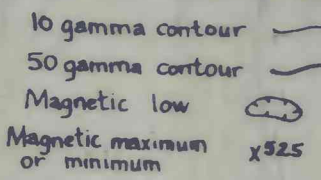 10 gamma contour
50 gamma contour
Magnetic low
Magnetic maximum
or minimum x525